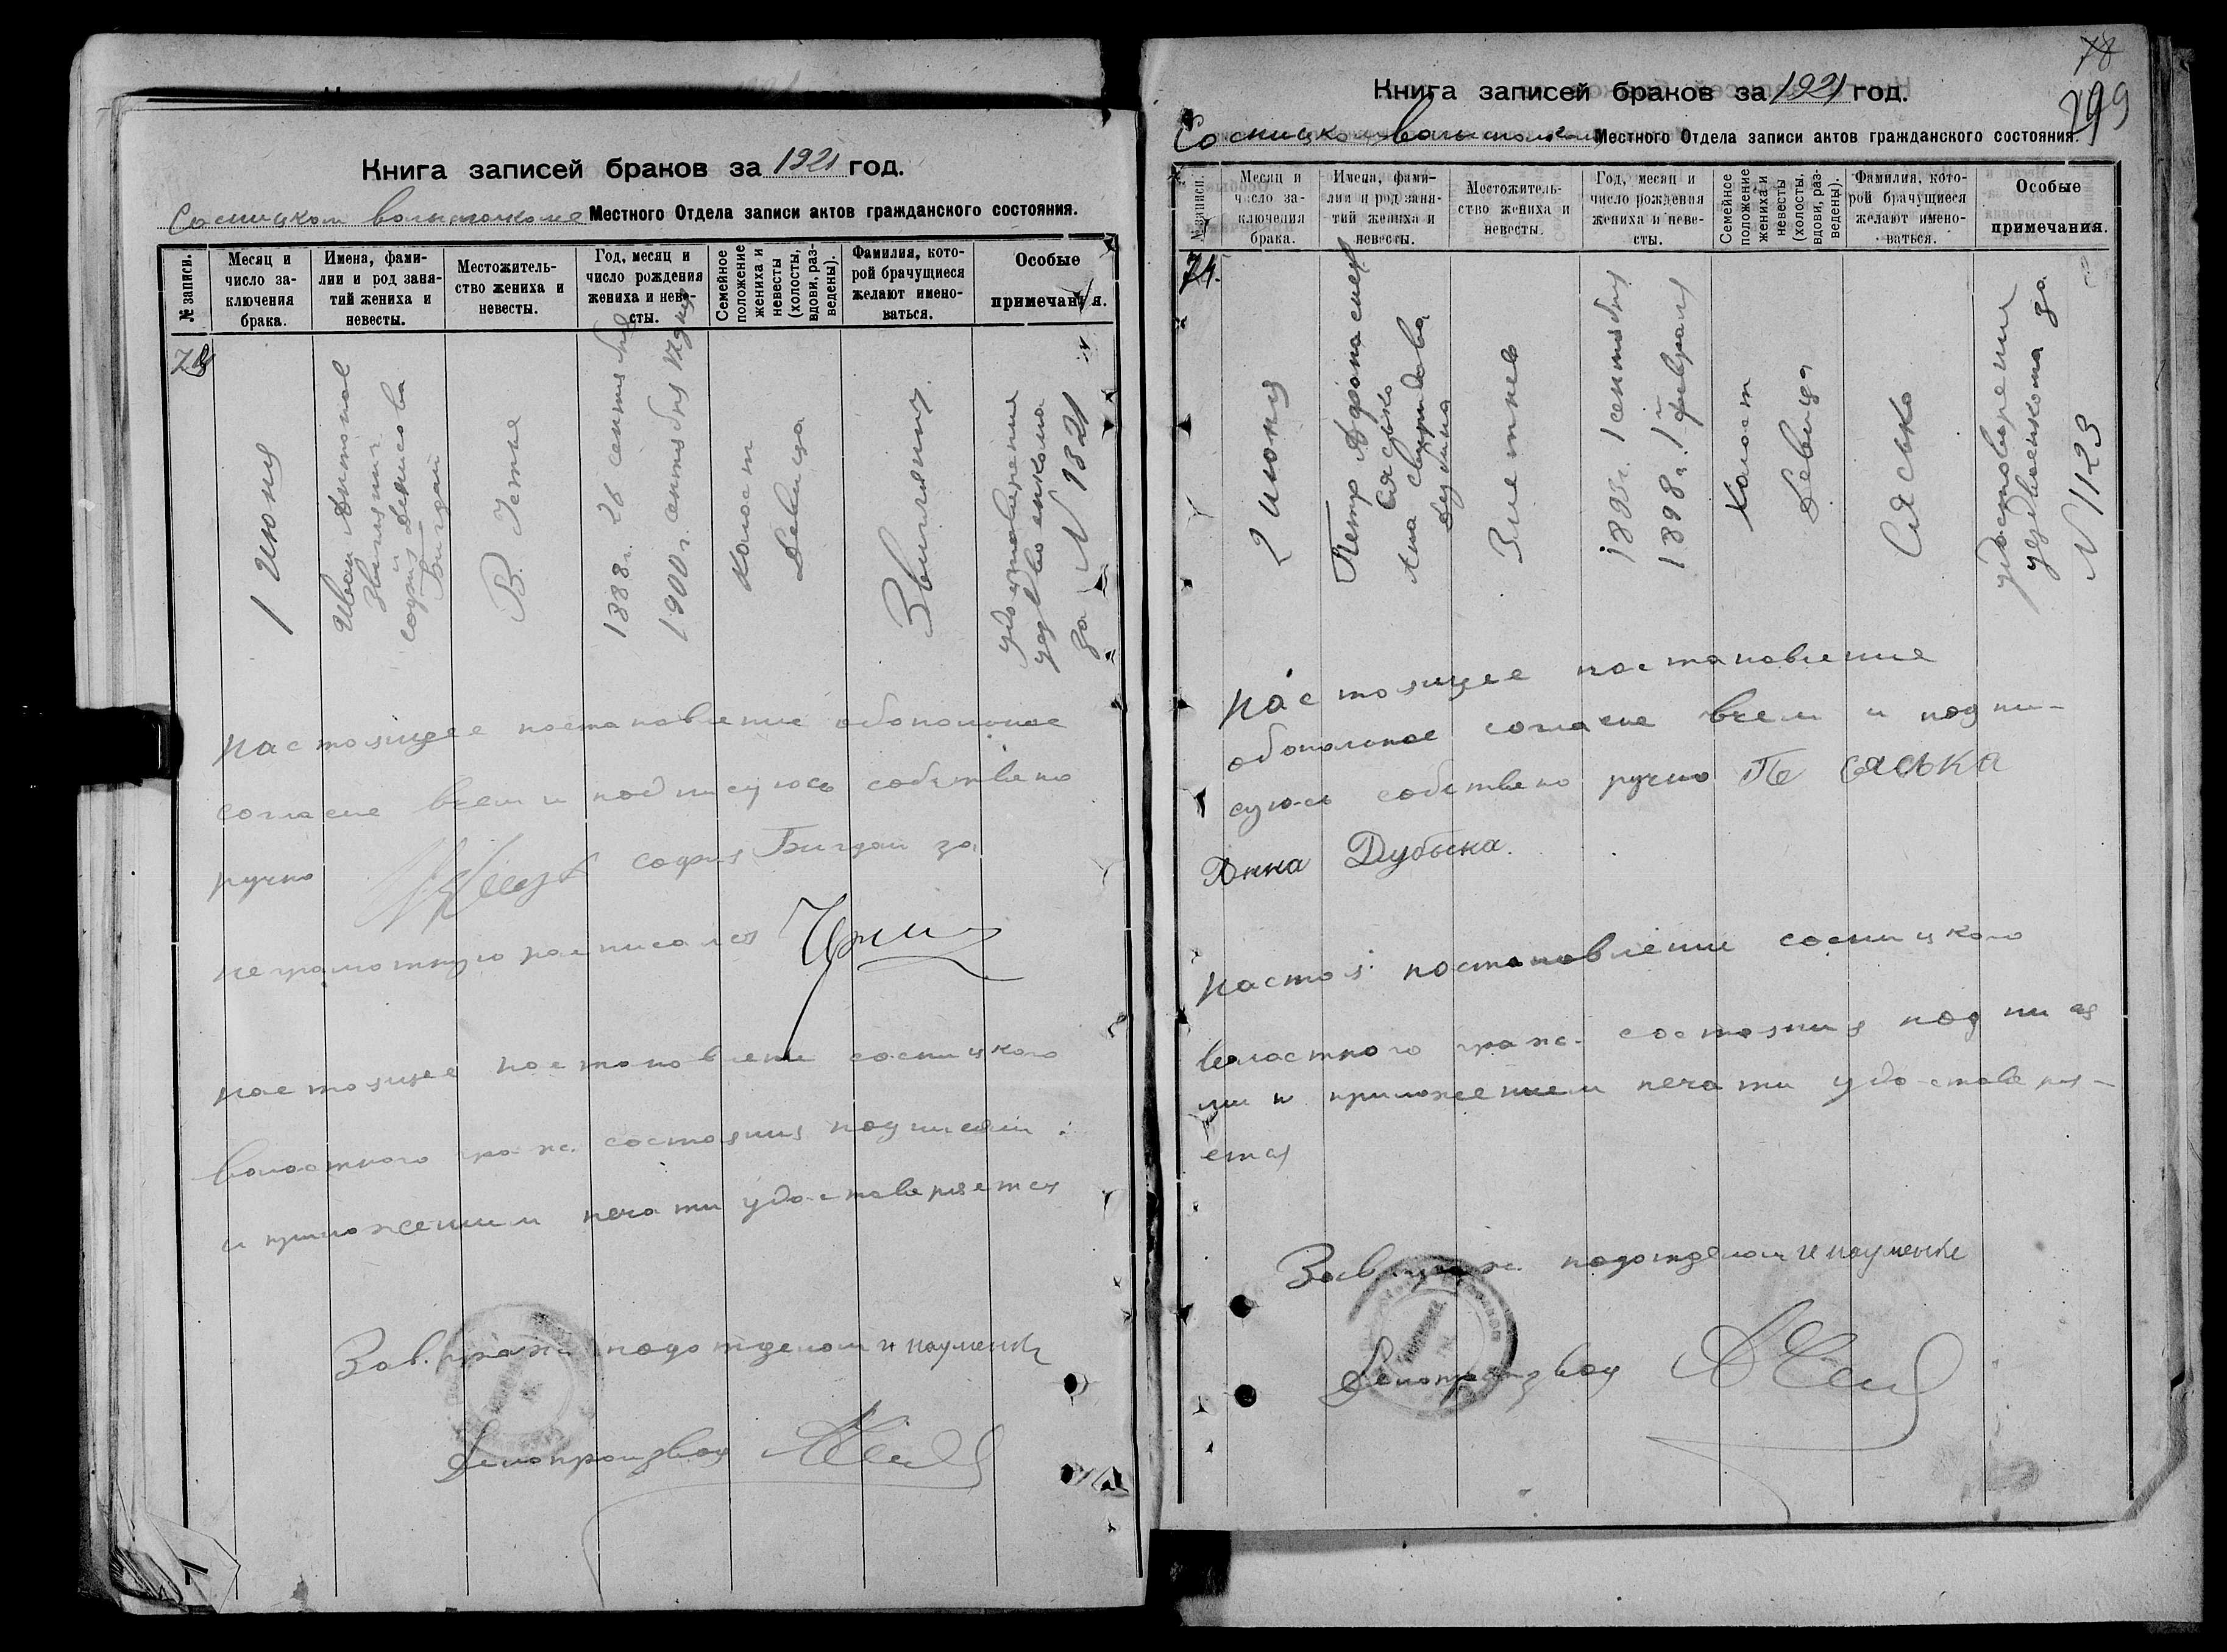 Книга записей браков за 1921 год.
Сосницком волисполкоме Местного Отдела записи актов гражданского состояния.
№ записи.
Месяц и число заключения брака.
Имена, фамилии и род занятий жениха и невесты.
Местожительство жениха и невесты.
Год, месяц и число рождения жениха и невесты.
Семейное положение жениха и невесты (холосты, вдови, разведены).
Фамилия, которой брачущиеся желают именоваться.
Особые примечания.
1 июня
Иван Антонов
Звиглянич
и
София Денисова
Бигдай
В. Устье
1888 г. 26 сентября
1900 г. сентября 17 дня
Холост
Девица
Звиглянич
удостоверение
уездвоенкома
за N 1321
Настоящее постановление обопольное
согласие всем и подписуюсь собствено
ручно София Бигдай за
неграмотную росписался
Настоящее постоновлени сосницкого
волостного граж. состояния подписями
и приложением печати удостоверяется
Зав. граж. подотделом И Науменко
Делопроизвод
78
Книга записей браков за 1921 год.
Местного Отдела записи актов гражданского состояния.
№ записи.
Месяц и число заключения брака.
Имена, фамилии и род занятий жениха и невесты.
Местожительство жениха и невесты.
Год, месяц и число рождения жениха и невесты.
Семейное положение жениха и невесты (холосты, вдови, разведены).
Фамилия, которой брачущиеся желают именоваться.
Особые примечания.
74.
2 июня
Петр
Сясько
Ана Свиридова
Дубина
Змётнев
1895 г. 1 сентября
1898 г. 1 февраля
Холост
Девица
Сясько
удостоверении
уездвоенкома за
N 1123
Настоящее постановление
обопольное согласие всем и подпи-
суюсь собствено ручно Пе Сяська
Анна Дубына.
Настоя. постановлении сосницкого
волостного граж. состояния подпися
ми и приложением печати удостоверя-
ется
Зав. граж. подотделом И Науменко
Делопроизвод